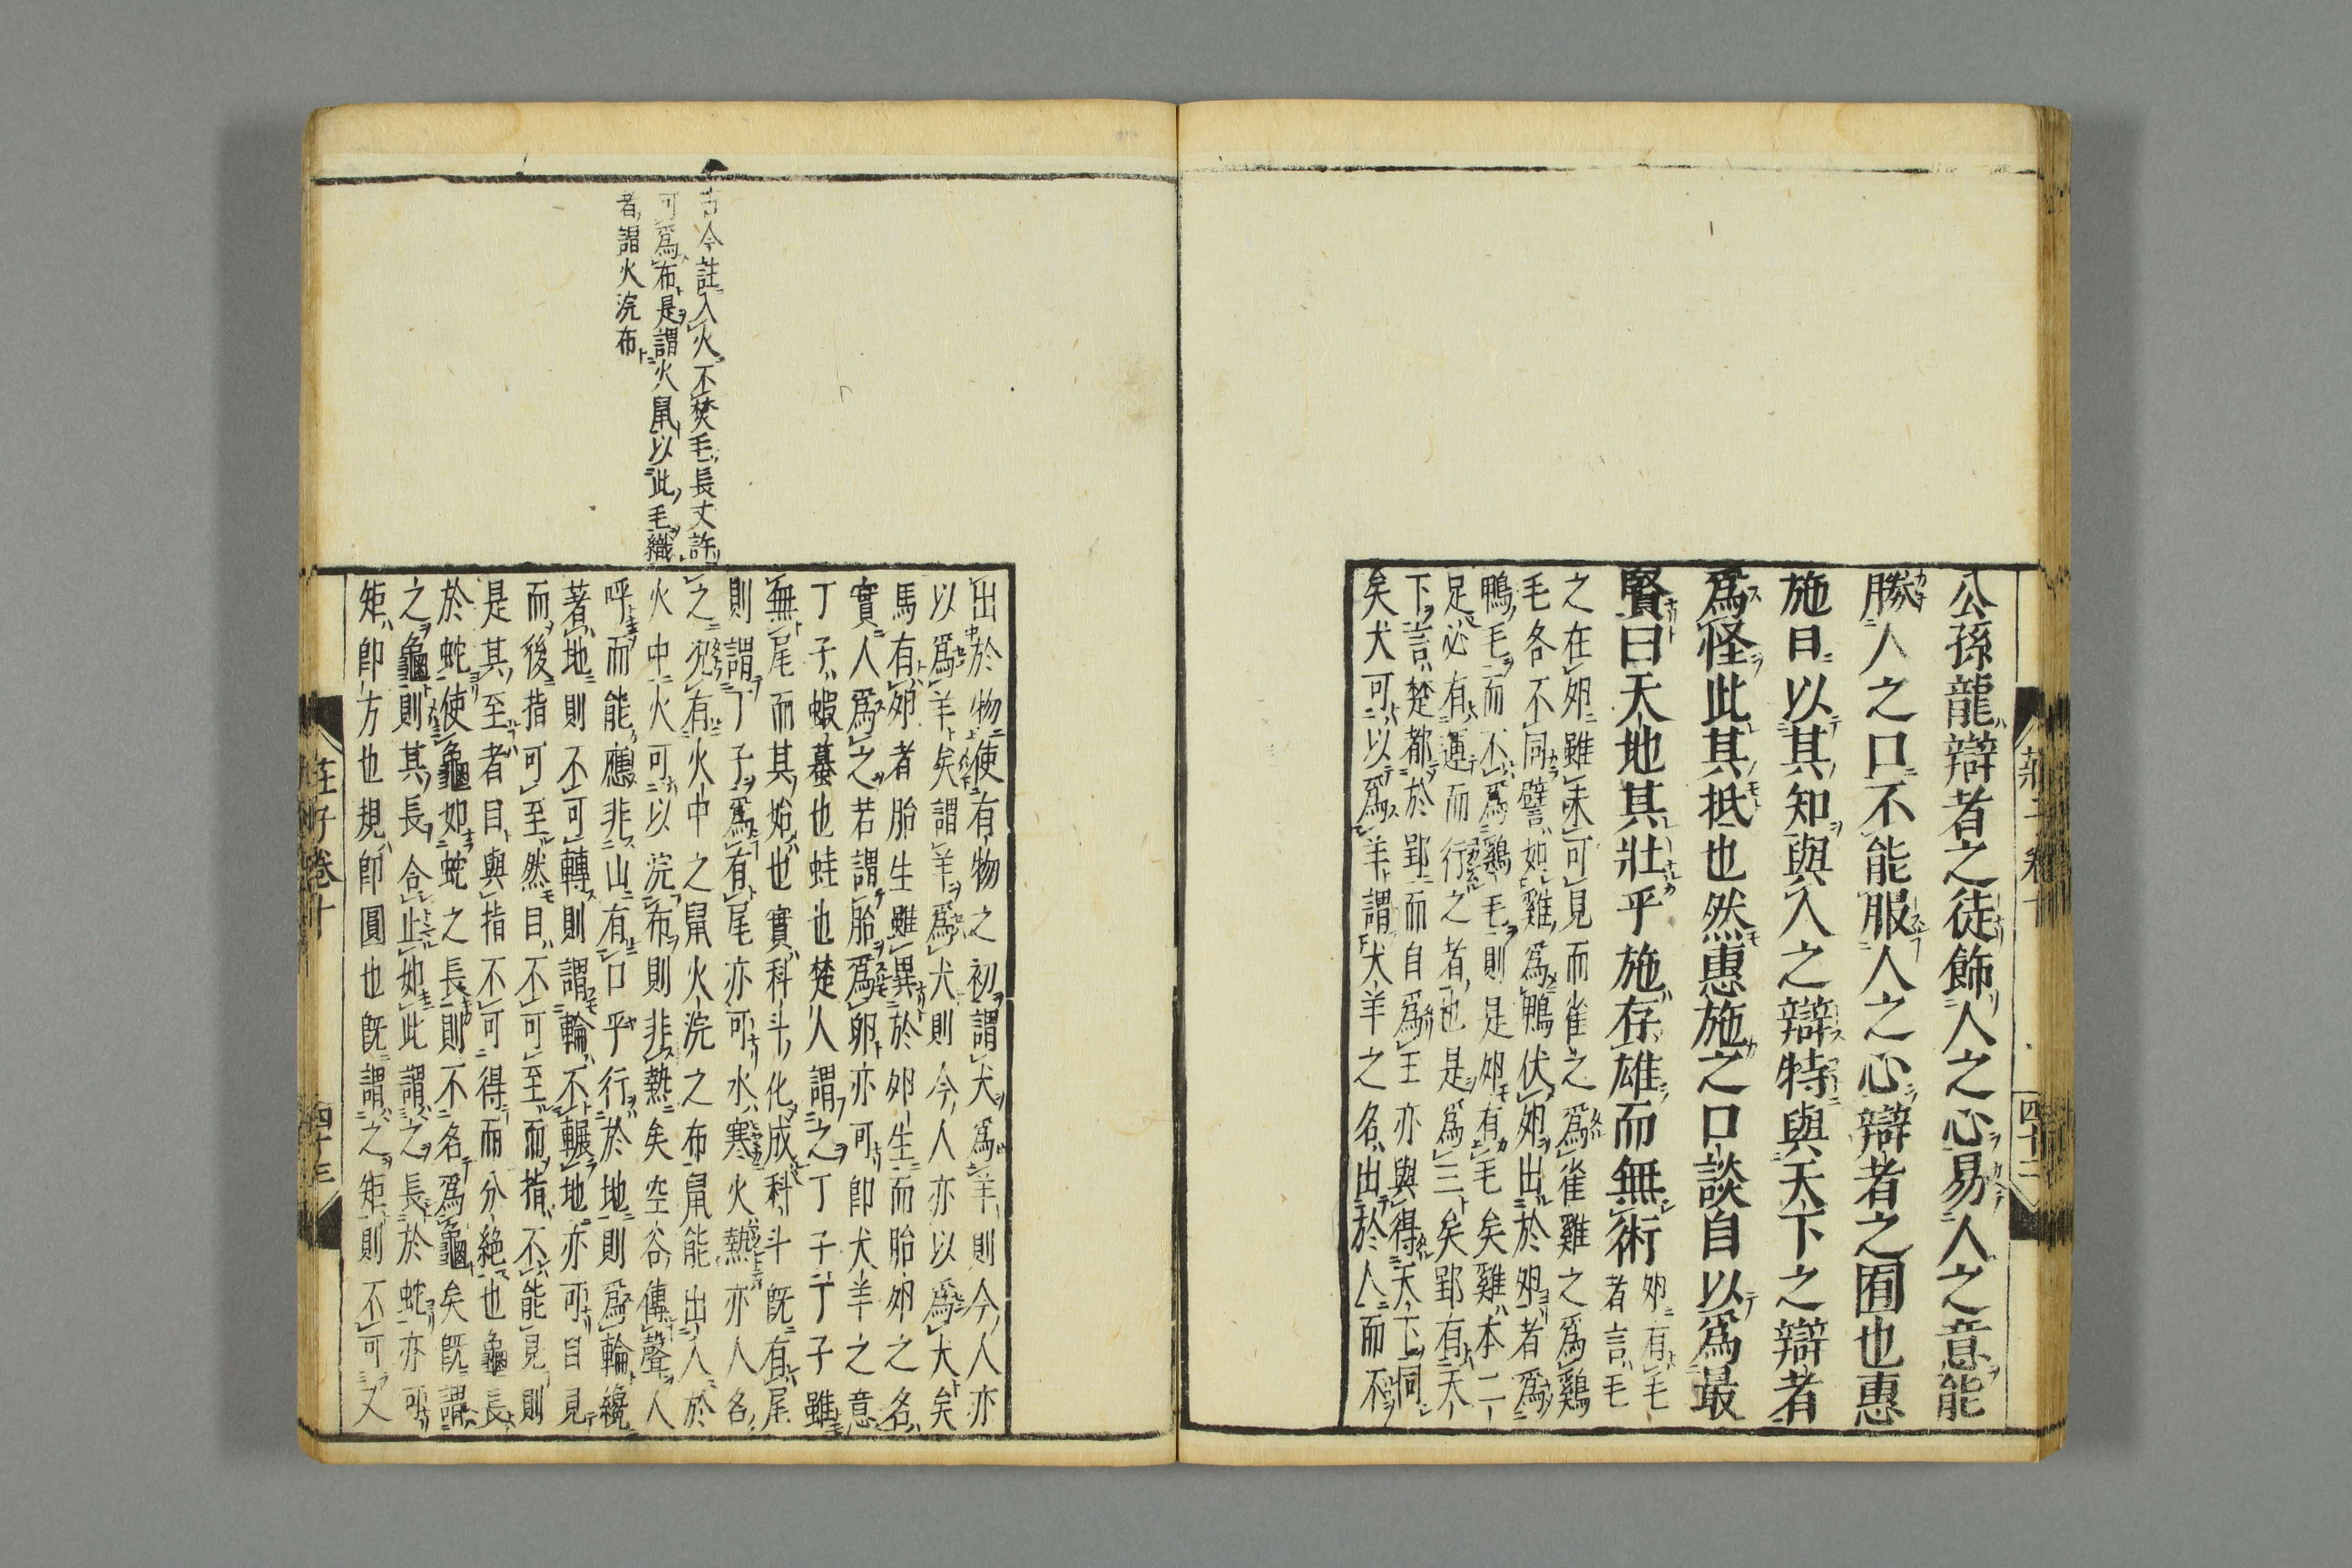 公孫龍辯者之徒飾人之心易人之意能
勝人之口不能服人之心辯者之囿也惠
施日以其知與人之辯特與天下之辯者
爲怪此其抵也然惠施之口談自以爲最
賢曰天地其壯乎施存雄而無術
夘有毛
者言毛
之在夘雖未可見而雀之爲雀雞之爲鷄
毛各不同譬如雞爲鴨伏夘出於夘者爲
鴨毛而不爲鷄毛則是夘有毛矣雞本二
足必有運而行之者也是爲三矣郢有天
下言楚都於郢而自爲王亦與得天下同
矣犬可以爲羊謂犬羊之名出於人而不
四十二
古今註入火不焚毛長丈許
可爲布是謂火鼠以此毛織
者謂火浣布
出於物使有物之初謂犬爲羊則今人亦
以爲羊矣謂羊爲犬則今人亦以爲犬矣
馬有夘者胎生雖異於夘生而胎夘之名
實人爲之若謂胎爲卵亦可即犬羊之意
丁子蝦蟇也蛙也楚人謂之丁子丁子雖
無尾而其始也實科斗化成科斗既有尾
則謂丁子爲有尾亦可水寒火熱亦人名
之有火中之鼠火浣之布鼠能出入於
火中火可以浣布則非熱矣空谷傳聲人
呼而能應非山有口乎行於地則爲輪纔
著地則不可轉則謂輪不輾地亦可目見
而後指可至然目不可至而指不能見則
是其至者目與指不可得而分絶也龜長
於蛇使龜如蛇之長則不名爲龜矣既謂
之龜則其長合止如此謂之長於蛇亦可
矩即方也規即圓也既謂之矩則不可又
莊子卷十
四十三